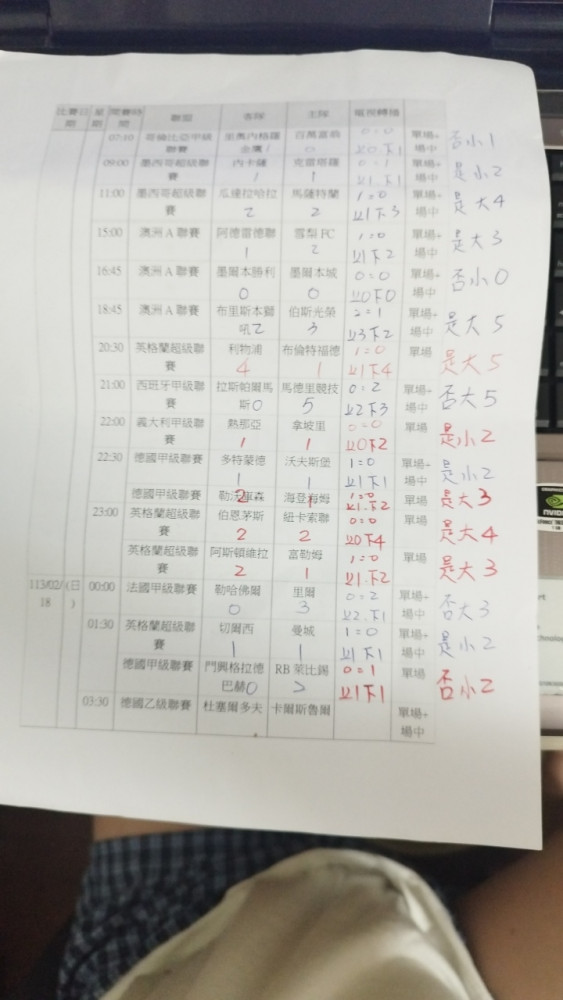 比賽日期 星期 開賽時間 聯盟 客隊 主隊 電視轉播
07:10 哥倫比亞甲級聯賽 里奧內格羅金鷹 1 百萬富翁 0 0=0 上0下1 單場+場中 否小1
09:00 墨西哥超級聯賽 內卡薩 1 克雷塔羅 1 0=1 上1下1 單場+場中 是小2
11:00 墨西哥超級聯賽 瓜達拉哈拉 2 馬薩特蘭 2 1=0 上1下3 單場+場中 是大4
15:00 澳洲A聯賽 阿德雷德聯 1 雪梨FC 2 1=0 上1下2 單場+場中 是大3
16:45 澳洲A聯賽 墨爾本勝利 0 墨爾本城 0 0=0 上0下0 單場+場中 否小0
18:45 澳洲A聯賽 布里斯本獅吼 2 伯斯光榮 3 2=1 上3下2 單場+場中 是大5
20:30 英格蘭超級聯賽 利物浦 4 布倫特福德 1 1=0 上1下4 單場 是大5
21:00 西班牙甲級聯賽 拉斯帕爾馬斯 0 馬德里競技 5 0=2 上2下3 單場+場中 否大5
22:00 義大利甲級聯賽 熱那亞 1 拿坡里 1 0=0 上0下2 單場 是小2
22:30 德國甲級聯賽 多特蒙德 1 沃夫斯堡 1 1=0 上1下1 單場+場中 是小2
德國甲級聯賽 勒沃庫森 2 海登海姆 1 1=0 上1下2 單場 是大3
23:00 英格蘭超級聯賽 伯恩茅斯 2 紐卡索聯 2 0=0 上0下4 單場 是大4
英格蘭超級聯賽 阿斯頓維拉 2 富勒姆 1 1=0 上1下2 單場 是大3
113/02/18 (日) 00:00 法國甲級聯賽 勒哈佛爾 0 里爾 3 0=2 上2下1 單場+場中 否大3
01:30 英格蘭超級聯賽 切爾西 1 曼城 1 1=0 上1下1 單場+場中 是小2
德國甲級聯賽 門興格拉德巴赫 0 RB萊比錫 2 0=1 上1下1 單場 否小2
03:30 德國乙級聯賽 杜塞爾多夫 卡爾斯魯爾 單場+場中